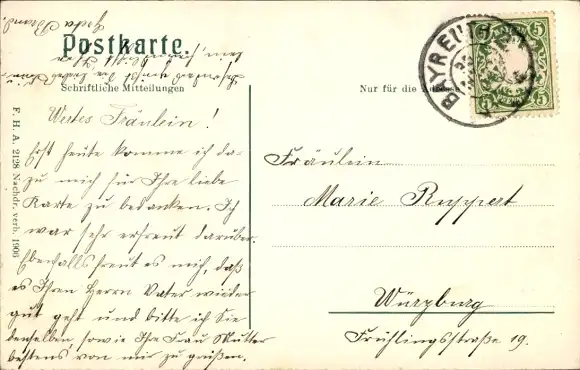 Postkarte.
Schriftliche Mitteilungen
Nur für die Adresse
BAYREUTH
5 5
F. H. A. 2128 Nachdr. verb. 1906
Wertes Fräulein!
Erst heute komme ich da-
zu mich für Ihre liebe
Karte zu bedanken. Ich
war sehr erfreut darüber.
Ebenfalls freut es mich, daß
es Ihren Herrn Vater wieder
gut geht und bitte ich Sie
denselben sowie Ihre Frau Mutter
bestens von mir zu grüßen.
Fräulein
Marie Ruppert
Würzburg
Frühlingsstraße 19.